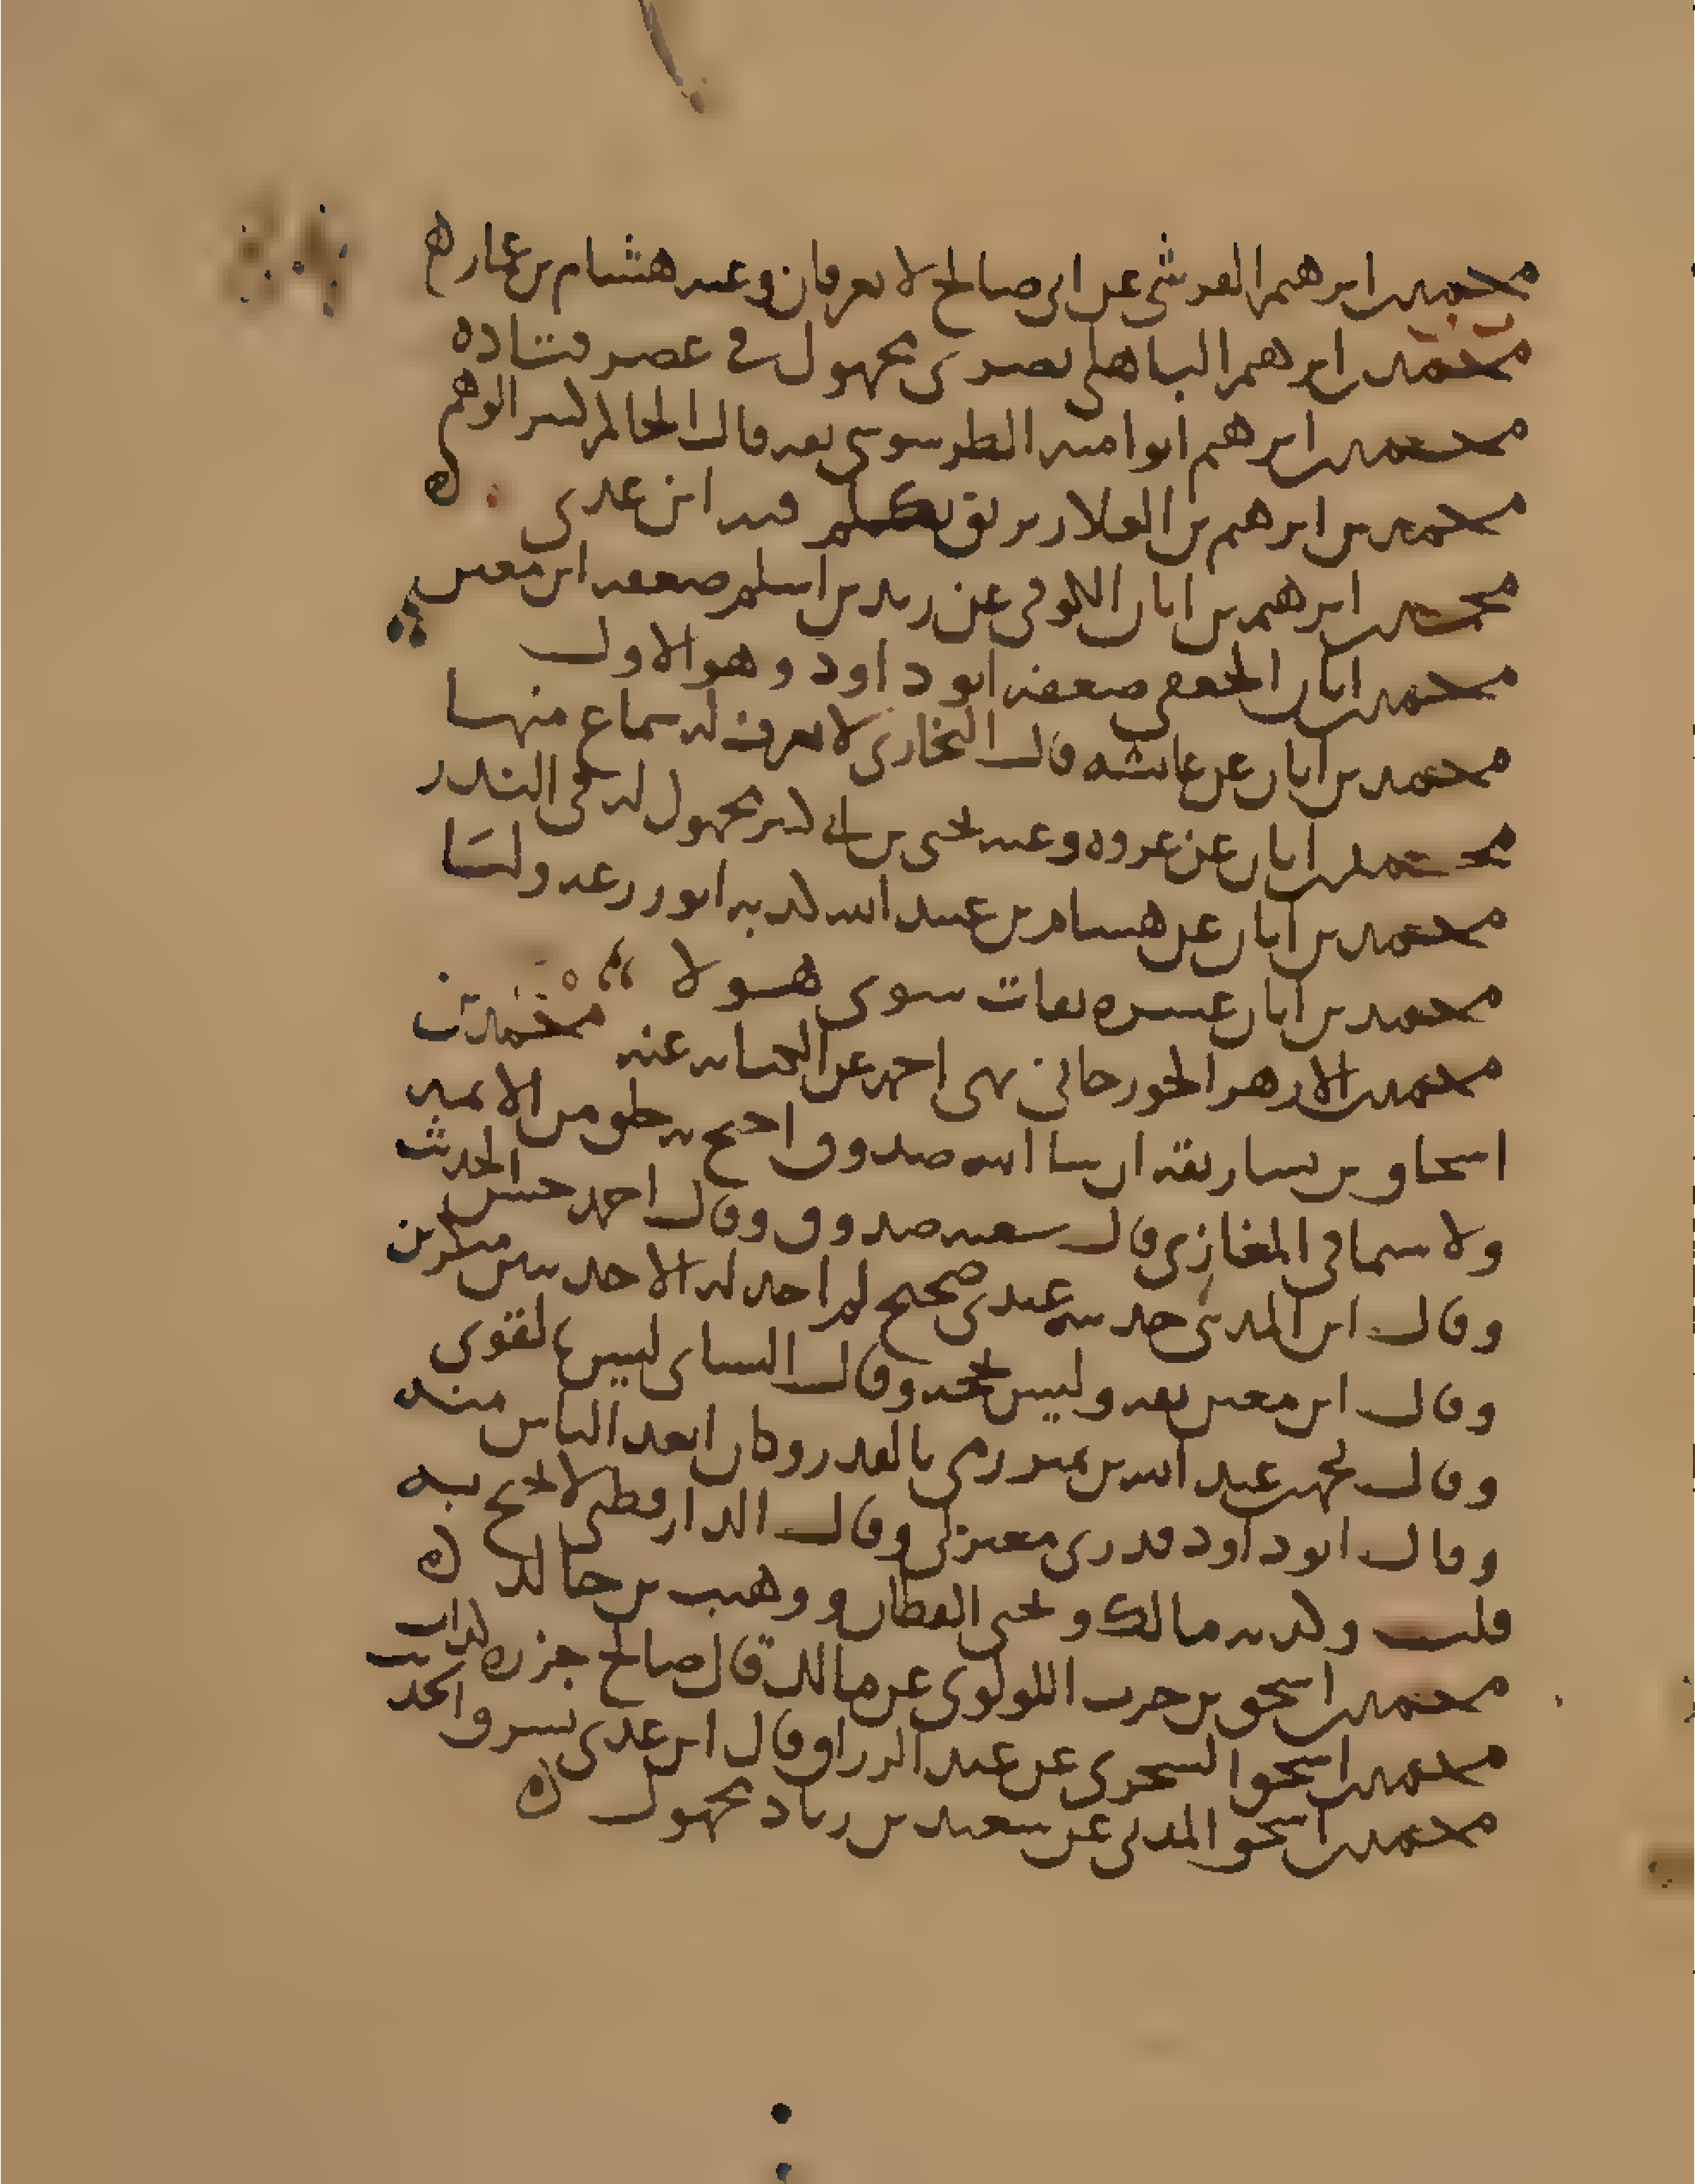 محمد بن ابرهيم القرشي عن ابي صالح لا يعرفان وعنه هشام بن عمار ه
محمد بن ابرهيم الباهلي بصري مجهول في عصر قتاده
محمد بن ابرهيم ابو اميه الطرسوسي ثقه قال الحاكم كثير الوهم
محمد بن ابرهيم بن العلا بن زبريق تكلم فيه ابن عدي
محمد بن ابرهيم بن ابان الكوفي عن زيد بن اسلم ضعفه ابن معين
محمد بن ابان الجعفي ضعفه ابو داود وهو الاول
محمد بن ابان عن عائشه قال البخاري لا يعرف له سماع منها
محمد بن ابان عن عروه وعنه يحيى بن ابي كثير مجهول له في النذر
محمد بن ابان عن هشام بن عبيد الله كذبه ابو زرعه ولنا
محمد بن ابان عشره ثقات سوى هولا
محمد بن الازهر الجوزجاني نهى احمد عن الكتابه عنه محمد بن
اسحاق بن يسار ثقه ان شا الله صدوق احتج به خلق من الايمه
ولا سيما في المغازي قال شعبه صدوق وقال احمد حسن الحديث
وقال ابن المديني حديثه عندي صحيح لم اجد له الا حديثين منكرين
وقال ابن معين ثقه وليس بحجه وقال النساي ليس بالقوي
وقال محمد بن عبد الله بن نمير رمي بالقدر وكان ابعد الناس منه
وقال ابو داود قدري معتزلي وقال الدارقطني لا يحتج به
قلت وكذبه مالك ويحيى القطان ووهيب بن خالد
محمد بن اسحق بن حرب اللولوي عن مالك قال صالح جزره كذاب
محمد بن اسحق السجزي عن عبد الرزاق قال ابن عدي يسرق الحديث
محمد بن اسحق المدني عن سعيد بن زياد مجهول